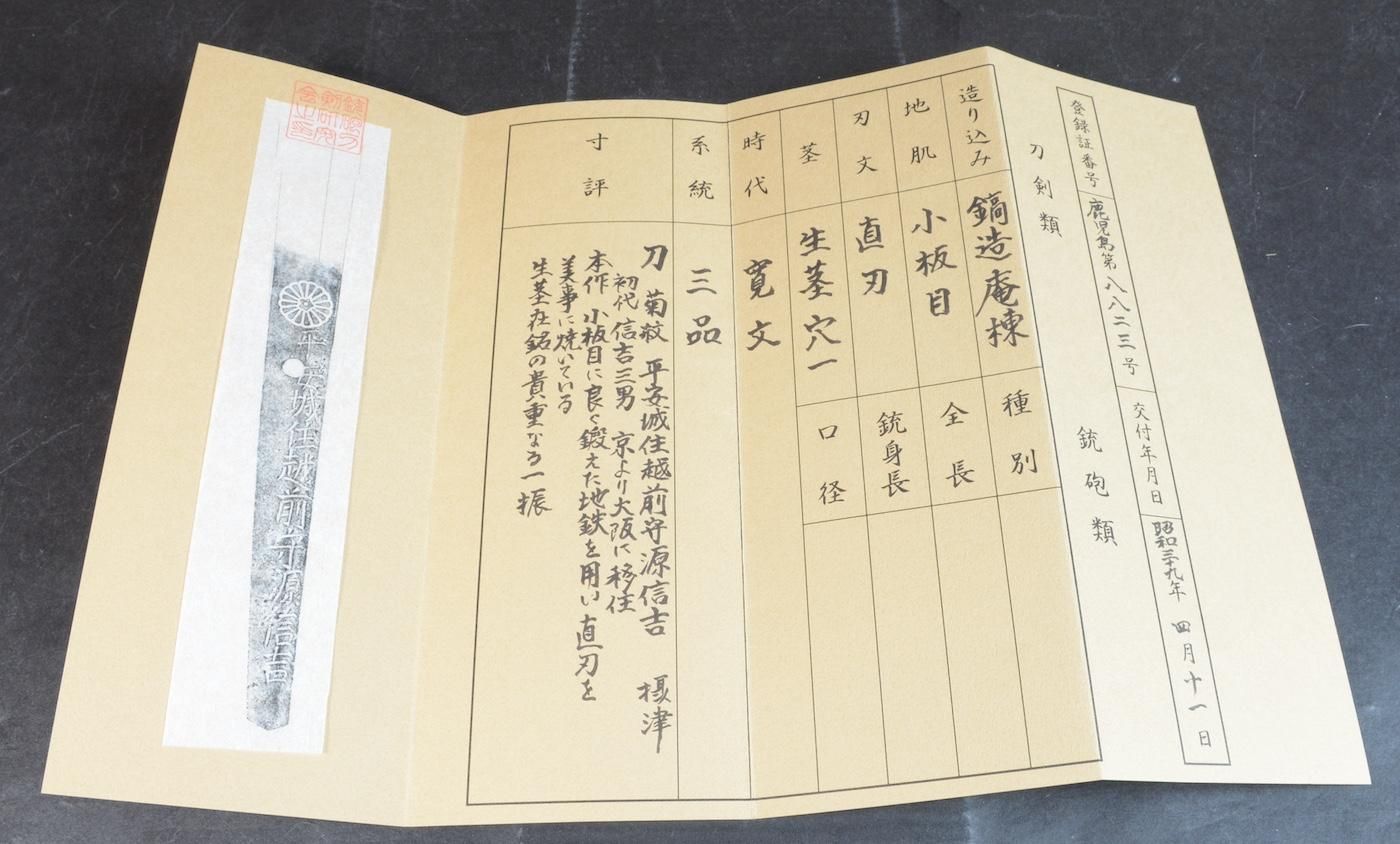 登録証番号 鹿児島第八八二三号 交付年月日 昭和三十九年 四月十一日
刀剣類 銃砲類
造り込み 鎬造庵棟 種別
地肌 小板目 全長
刃文 直刃 銃身長
茎 生茎穴一 口径
時代 寛文
系統 三品
寸評
刀 菊紋 平安城住越前守源信吉 摂津
初代信吉三男 京より大阪に移住
本作 小板目に良く鍛えた地鉄を用い直刃を
美事に焼いている
生茎在銘の貴重なる一振
平安城住越前守源信吉